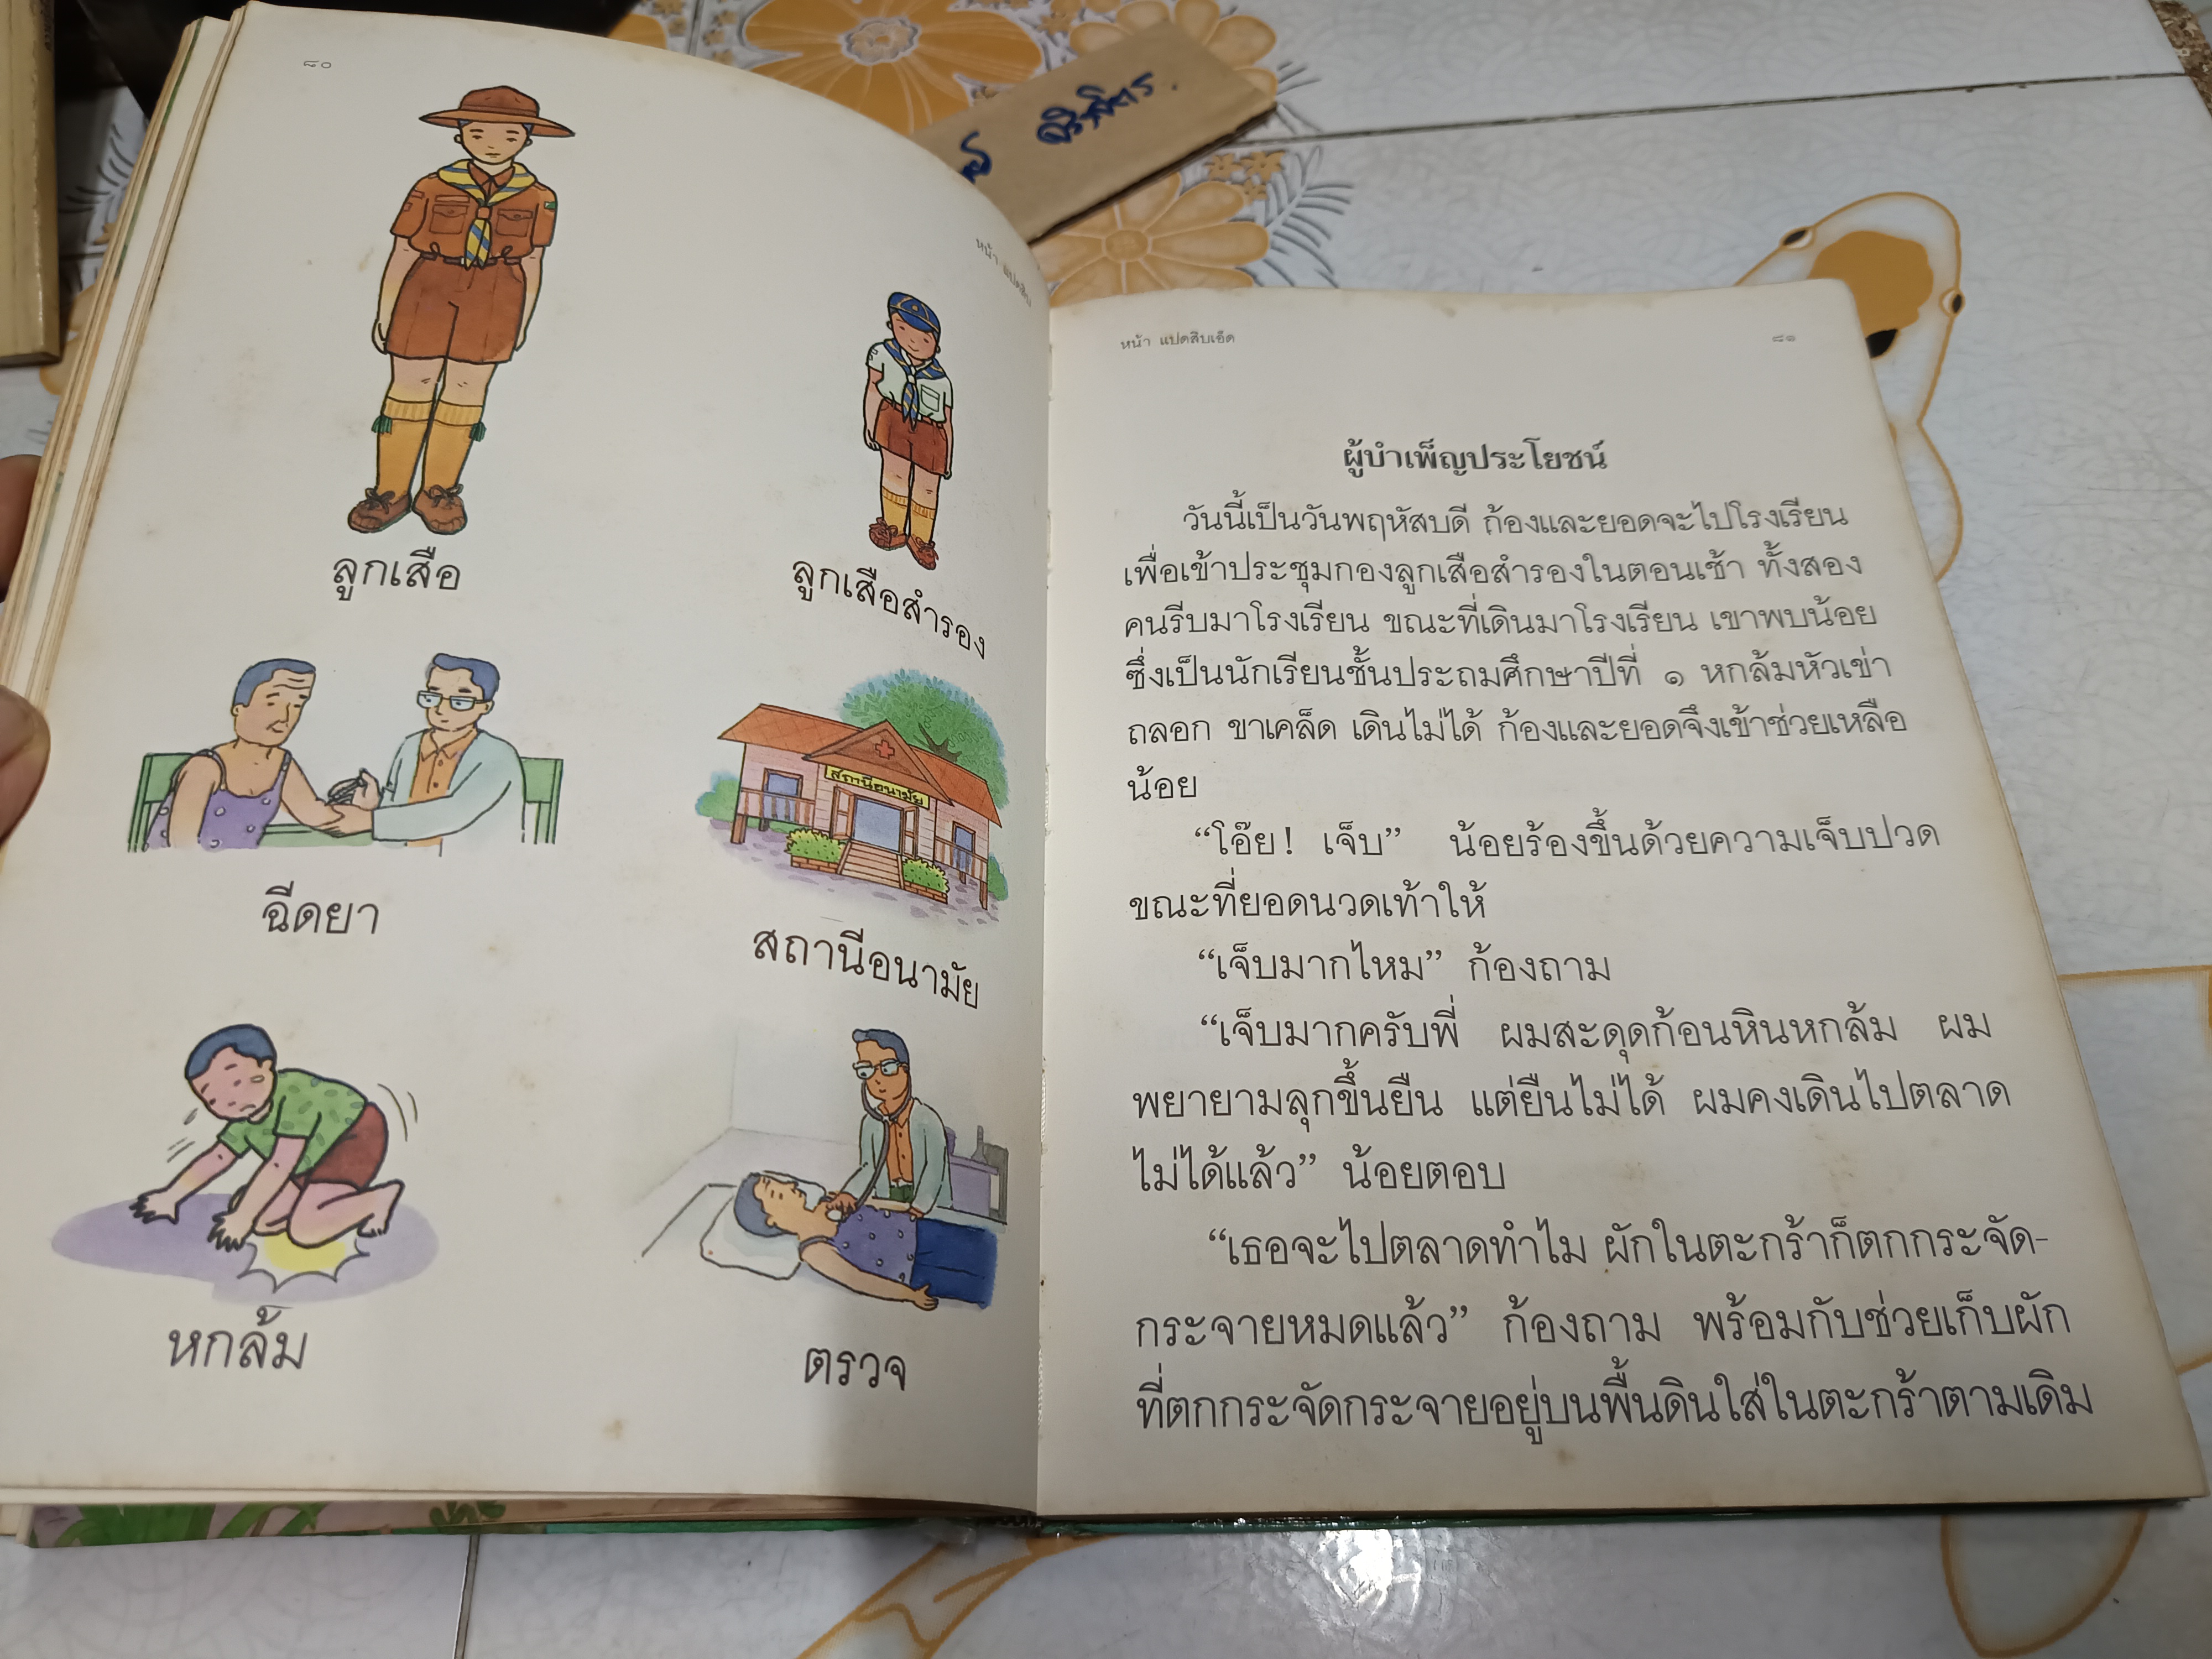 ๘๐
หน้า แปดสิบ
ลูกเสือ
ลูกเสือสำรอง
ฉีดยา
สถานีอนามัย
สถานีอนามัย
หกล้ม
ตรวจ
หน้า แปดสิบเอ็ด
๘๑
ผู้บำเพ็ญประโยชน์
วันนี้เป็นวันพฤหัสบดี ก้องและยอดจะไปโรงเรียน
เพื่อเข้าประชุมกองลูกเสือสำรองในตอนเช้า ทั้งสอง
คนรีบมาโรงเรียน ขณะที่เดินมาโรงเรียน เขาพบน้อย
ซึ่งเป็นนักเรียนชั้นประถมศึกษาปีที่ ๑ หกล้มหัวเข่า
ถลอก ขาเคล็ด เดินไม่ได้ ก้องและยอดจึงเข้าช่วยเหลือ
น้อย
“โอ๊ย! เจ็บ” น้อยร้องขึ้นด้วยความเจ็บปวด
ขณะที่ยอดนวดเท้าให้
“เจ็บมากไหม” ก้องถาม
“เจ็บมากครับพี่ ผมสะดุดก้อนหินหกล้ม ผม
พยายามลุกขึ้นยืน แต่ยืนไม่ได้ ผมคงเดินไปตลาด
ไม่ได้แล้ว” น้อยตอบ
“เธอจะไปตลาดทำไม ผักในตะกร้าก็ตกกระจัด-
กระจายหมดแล้ว” ก้องถาม พร้อมกับช่วยเก็บผัก
ที่ตกกระจัดกระจายอยู่บนพื้นดินใส่ในตะกร้าตามเดิม